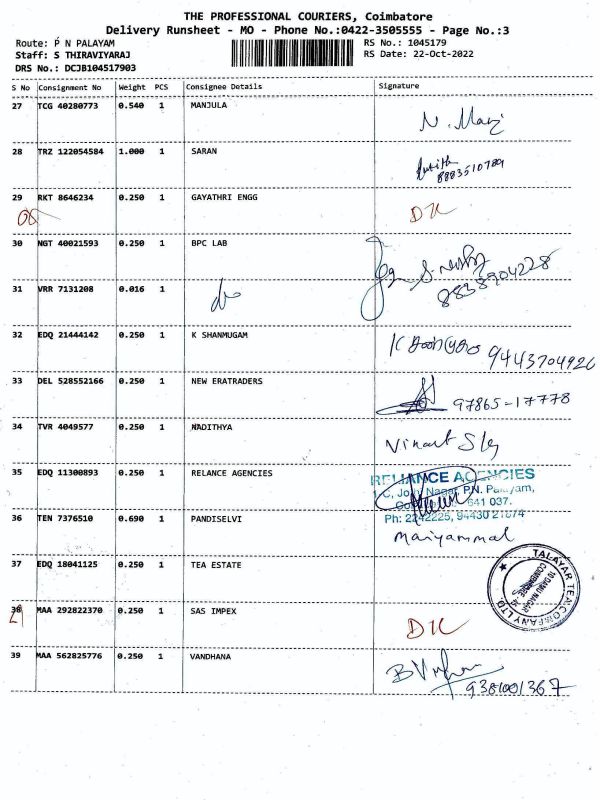 THE PROFESSIONAL COURIERS, Coimbatore
Delivery Runsheet - MO - Phone No.:0422-3505555 - Page No.:3
Route: P N PALAYAM
RS No.: 1045179
Staff: S THIRAVIYARAJ
RS Date: 22-Oct-2022
DRS No.: DCJB104517903
S No Consignment No Weight PCS Consignee Details Signature
27 TCG 40280773 0.540 1 MANJULA
N. Manj
28 TRZ 122054584 1.000 1 SARAN
29 RKT 8646234 0.250 1 GAYATHRI ENGG
30 NGT 40021593 0.250 1 BPC LAB
8838904228
31 VRR 7131208 0.016 1 do
32 EDQ 21444142 0.250 1 K SHANMUGAM
9443704926
33 DEL 528552166 0.250 1 NEW ERATRADERS
97865-17778
34 TVR 4049577 0.250 1 NADITHYA
35 EDQ 11300893 0.250 1 RELANCE AGENCIES
RELIANCE AGENCIES
Nagar P.N. Palayam,
641 037.
Ph: 2242225, 94430 21674
36 TEN 7376510 0.690 1 PANDISELVI
Mariyammal
37 EDQ 18041125 0.250 1 TEA ESTATE
TALAYAR TEA COMPANY LTD.
38 MAA 292822370 0.250 1 SAS IMPEX
39 MAA 562825776 0.250 1 VANDHANA
9381001367